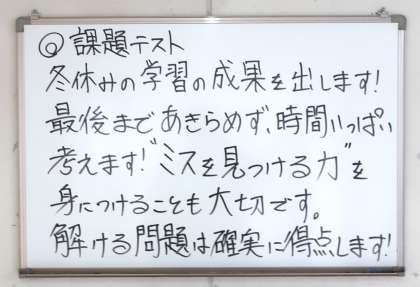 ◎課題テスト
冬休みの学習の成果を出します!
最後まであきらめず、時間いっぱい
考えます!"ミスを見つける力"を
身につけることも大切です。
解ける問題は確実に得点します!